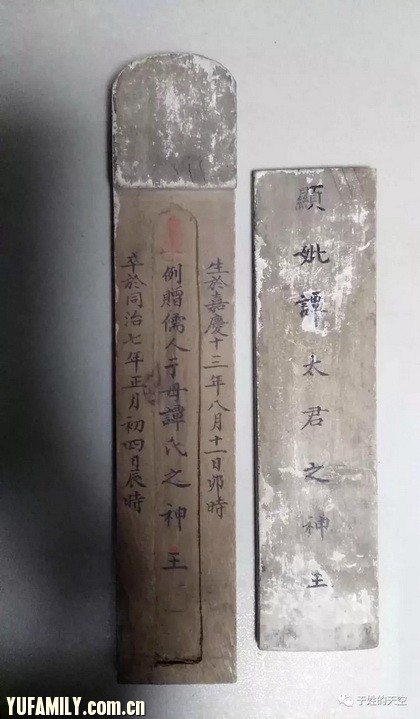 生於嘉慶十三年八月十一日卯時
例贈儒人于母譚氏之神主
卒於同治七年正月初四日辰時
顯妣譚太君之神主
于姓的天空
YUFAMILY.com.cn